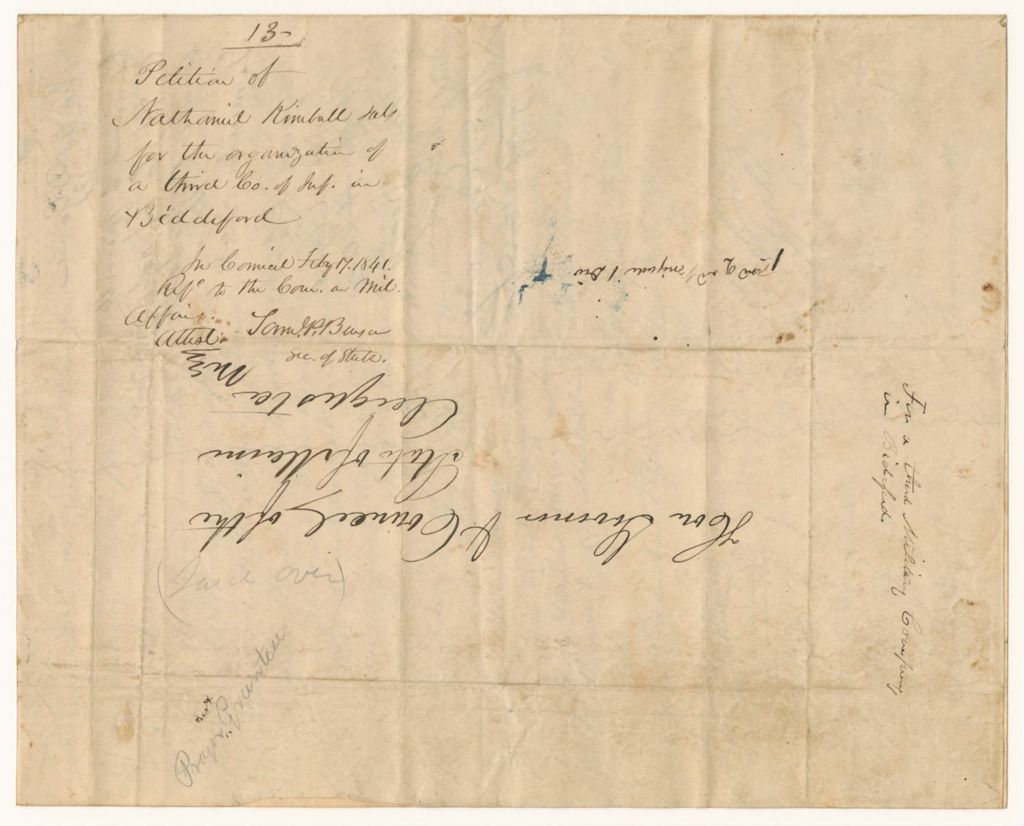 13-
Petition of
Nathaniel Kimball & als
for the organization of
a third Co. of Inf. in
Biddeford
In Council Feby 17. 1841.
Refd to the Com. on Mil.
Affairs.
Attest: Saml. P. Benson
Sec. of State.
Hon Governor & Council of the
State of Maine
Augusta
Me
For a third Military Company
in Bideford
(Laid over)
Prayer not Granted